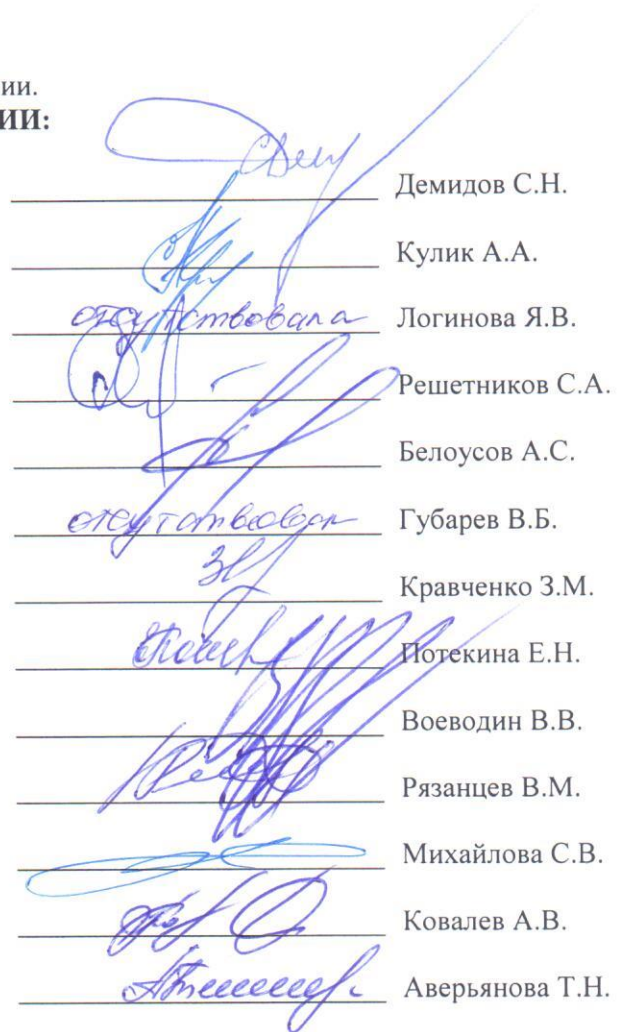 ии.
ИИ:
Демидов С.Н.
Кулик А.А.
отсутствовала Логинова Я.В.
Решетников С.А.
Белоусов А.С.
отсутствовал Губарев В.Б.
Кравченко З.М.
Потекина Е.Н.
Воеводин В.В.
Рязанцев В.М.
Михайлова С.В.
Ковалев А.В.
Аверьянова Т.Н.